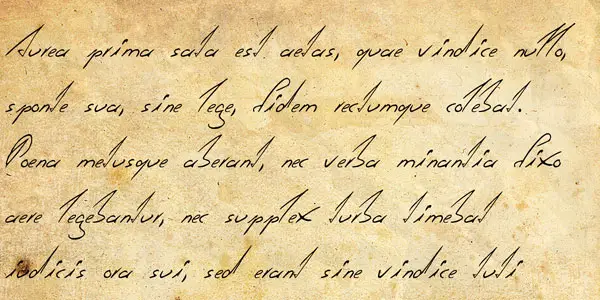 Aurea prima sata est aetas, quae vindice nullo,
sponte sua, sine lege, fidem rectumque colebat.
Poena metusque aberant, nec verba minantia fixo
aere legebantur, nec supplex turba timebat
iudicis ora sui, sed erant sine vindice tuti